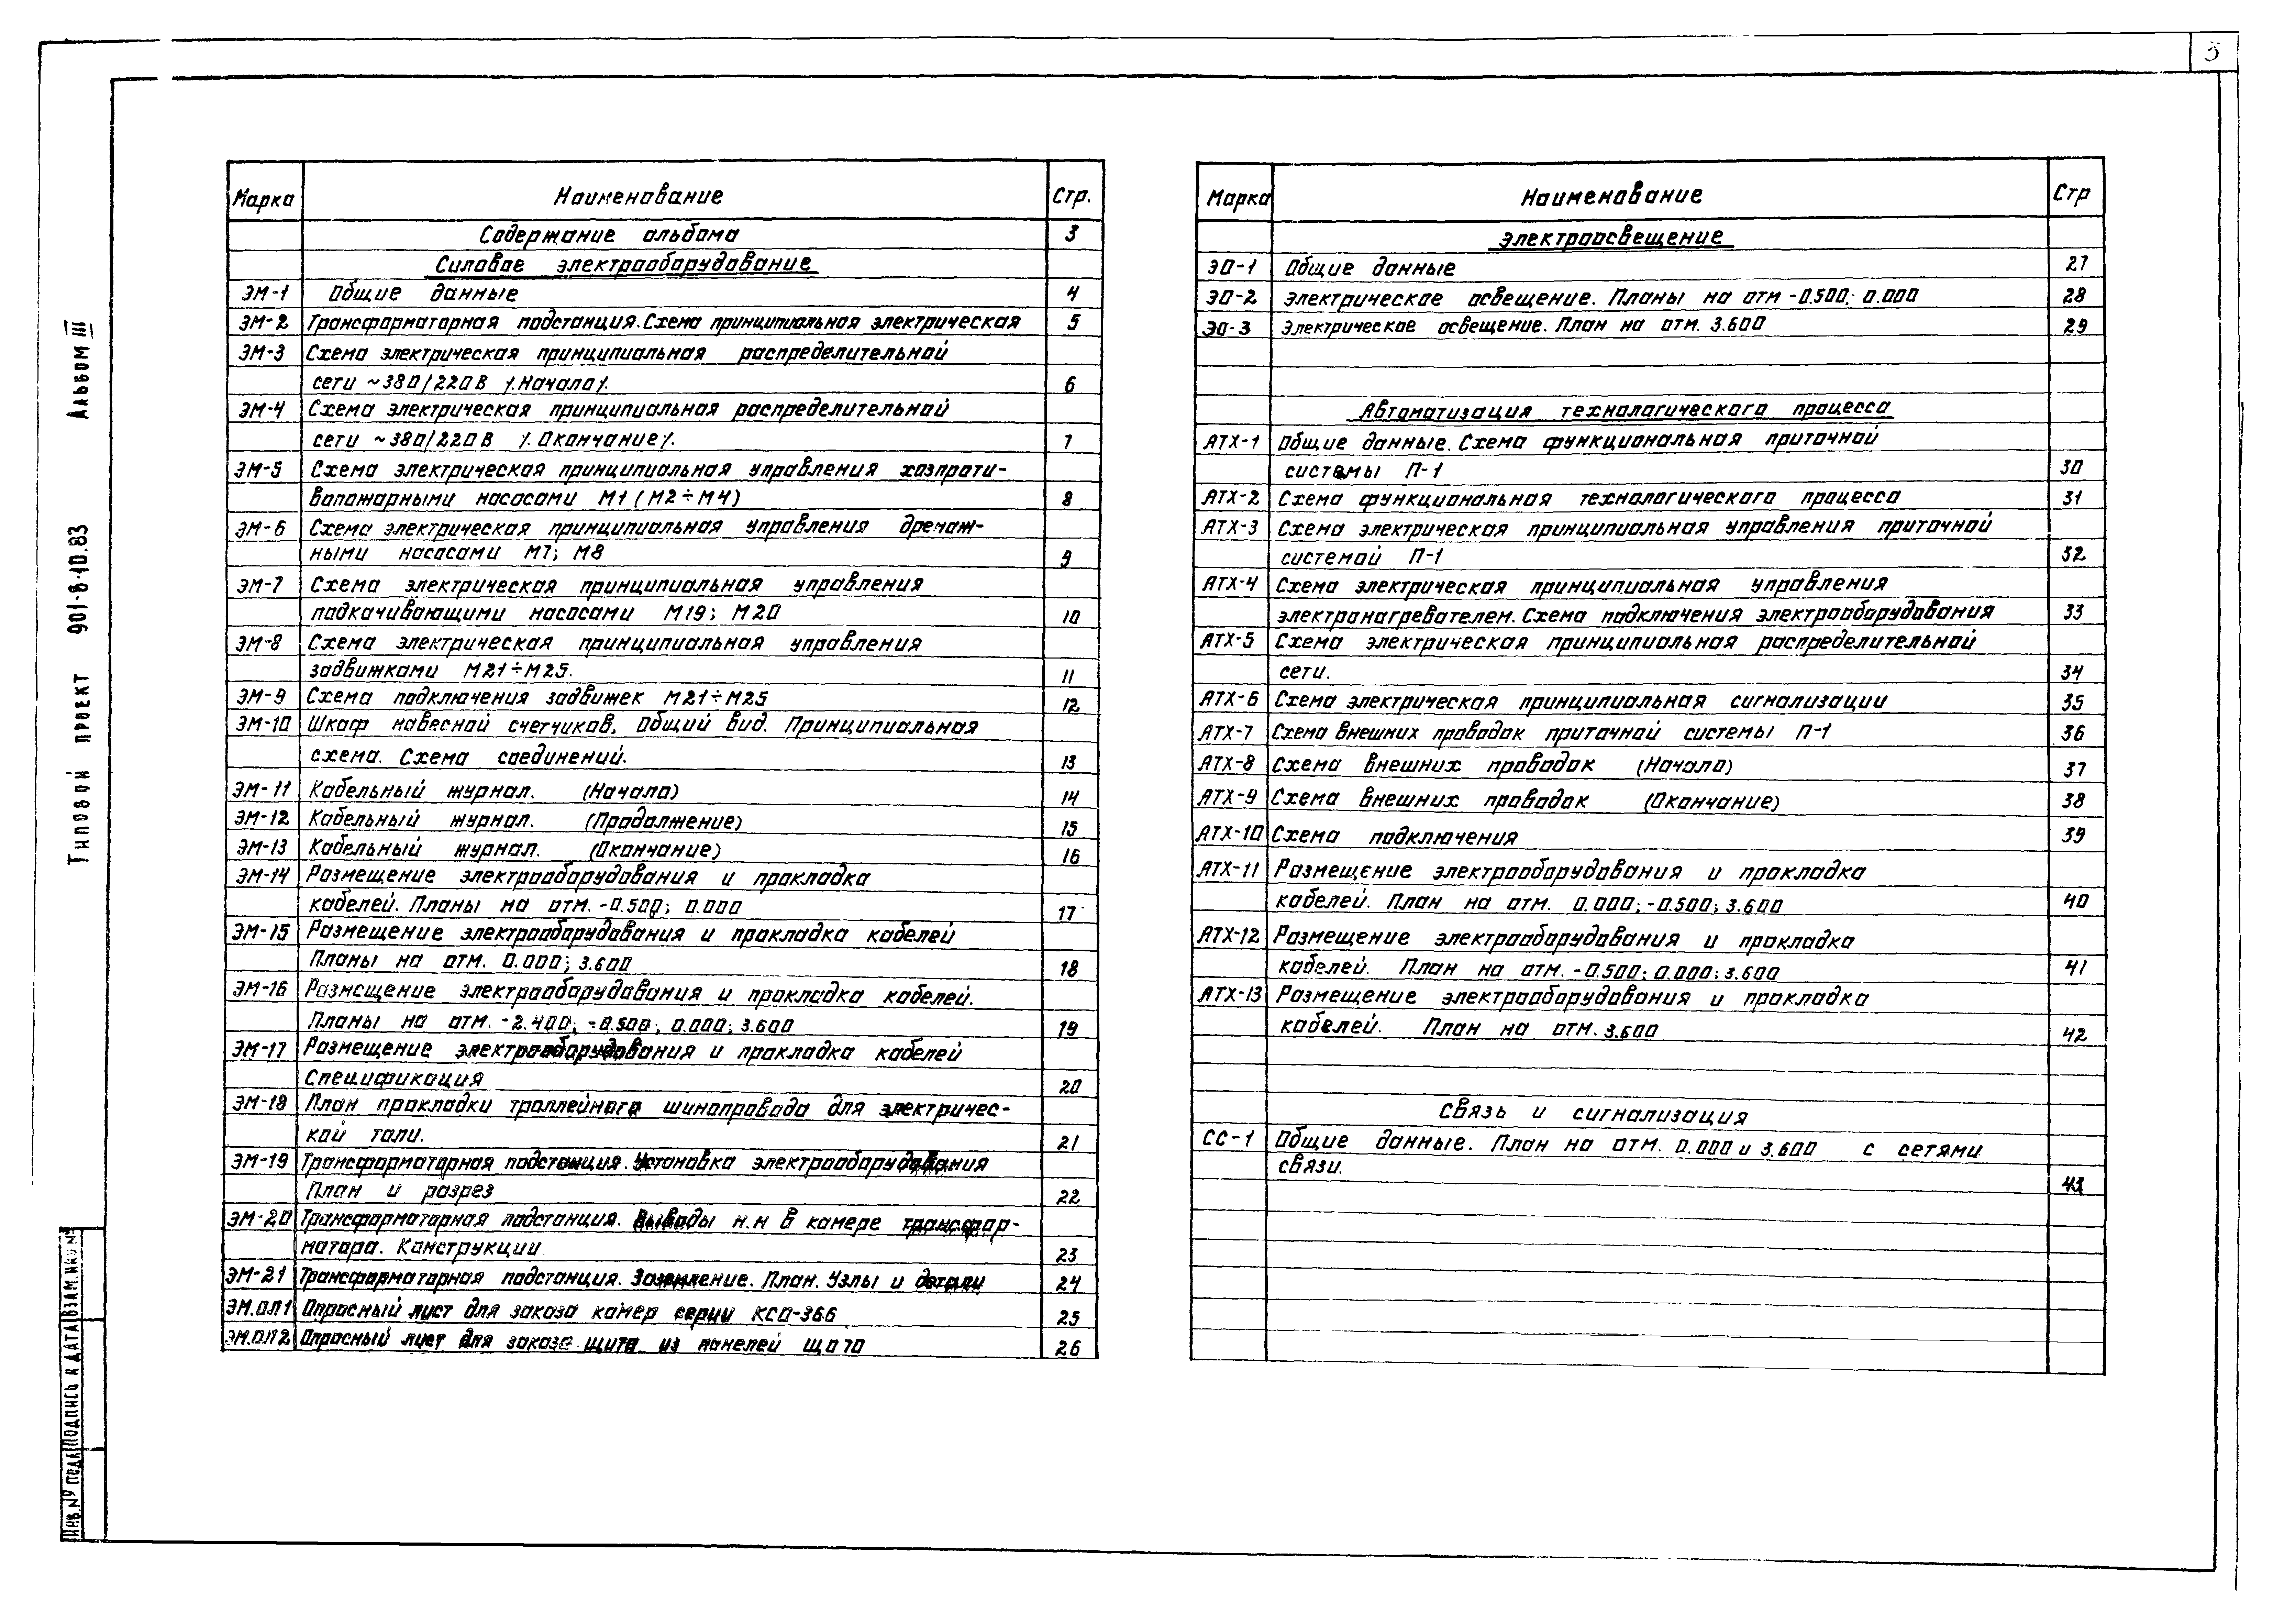 3
Альбом III
Типовой проект 901-8-10.83
Марка Наименование Стр.
Содержание альбома 3
Силовое электрооборудование
ЭМ-1 Общие данные 4
ЭМ-2 Трансформаторная подстанция. Схема принципиальная электрическая 5
ЭМ-3 Схема электрическая принципиальная распределительной
сети ~380/220В /.Начало/. 6
ЭМ-4 Схема электрическая принципиальная распределительной
сети ~380/220В /.Окончание/. 7
ЭМ-5 Схема электрическая принципиальная управления хозпроти-
вопожарными насосами М1 (М2÷М4) 8
ЭМ-6 Схема электрическая принципиальная управления дренаж-
ными насосами М7; М8 9
ЭМ-7 Схема электрическая принципиальная управления
подкачивающими насосами М19; М20 10
ЭМ-8 Схема электрическая принципиальная управления
задвижками М21÷М25. 11
ЭМ-9 Схема подключения задвижек М21÷М25 12
ЭМ-10 Шкаф навесной счетчиков. Общий вид. Принципиальная
схема. Схема соединений. 13
ЭМ-11 Кабельный журнал. (Начало) 14
ЭМ-12 Кабельный журнал. (Продолжение) 15
ЭМ-13 Кабельный журнал. (Окончание) 16
ЭМ-14 Размещение электрооборудования и прокладка
кабелей. Планы на отм. -0.500; 0.000 17
ЭМ-15 Размещение электрооборудования и прокладка кабелей
Планы на отм. 0.000; 3.600 18
ЭМ-16 Размещение электрооборудования и прокладка кабелей.
Планы на отм. -2.400; -0.500; 0.000; 3.600 19
ЭМ-17 Размещение электрооборудования и прокладка кабелей
Спецификация 20
ЭМ-18 План прокладки троллейного шинопровода для электричес-
кой тали. 21
ЭМ-19 Трансформаторная подстанция. Установка электрооборудования
План и разрез 22
ЭМ-20 Трансформаторная подстанция. Выводы н.н в камере трансфор-
матора. Конструкции 23
ЭМ-21 Трансформаторная подстанция. Заземление. План. Узлы и детали 24
ЭМ.ОЛ1 Опросный лист для заказа камер серии КСО-366 25
ЭМ.ОЛ2 Опросный лист для заказа щита из панелей ЩО70 26
Марка Наименование Стр
Электроосвещение
ЭО-1 Общие данные 27
ЭО-2 Электрическое освещение. Планы на отм -0.500; 0.000 28
ЭО-3 Электрическое освещение. План на отм. 3.600 29
Автоматизация технологического процесса
АТХ-1 Общие данные. Схема функциональная приточной
системы П-1 30
АТХ-2 Схема функциональная технологического процесса 31
АТХ-3 Схема электрическая принципиальная управления приточной
системой П-1 32
АТХ-4 Схема электрическая принципиальная управления
электронагревателем. Схема подключения электрооборудования 33
АТХ-5 Схема электрическая принципиальная распределительной
сети. 34
АТХ-6 Схема электрическая принципиальная сигнализации 35
АТХ-7 Схема внешних проводок приточной системы П-1 36
АТХ-8 Схема внешних проводок (Начало) 37
АТХ-9 Схема внешних проводок (Окончание) 38
АТХ-10 Схема подключения 39
АТХ-11 Размещение электрооборудования и прокладка
кабелей. План на отм. 0.000; -0.500; 3.600 40
АТХ-12 Размещение электрооборудования и прокладка
кабелей. План на отм. -0.500; 0.000; 3.600 41
АТХ-13 Размещение электрооборудования и прокладка
кабелей. План на отм. 3.600 42
Связь и сигнализация
СС-1 Общие данные. План на отм. 0.000 и 3.600 с сетями
связи. 43
Инв.№ подл Подпись и дата Взам.инв.№